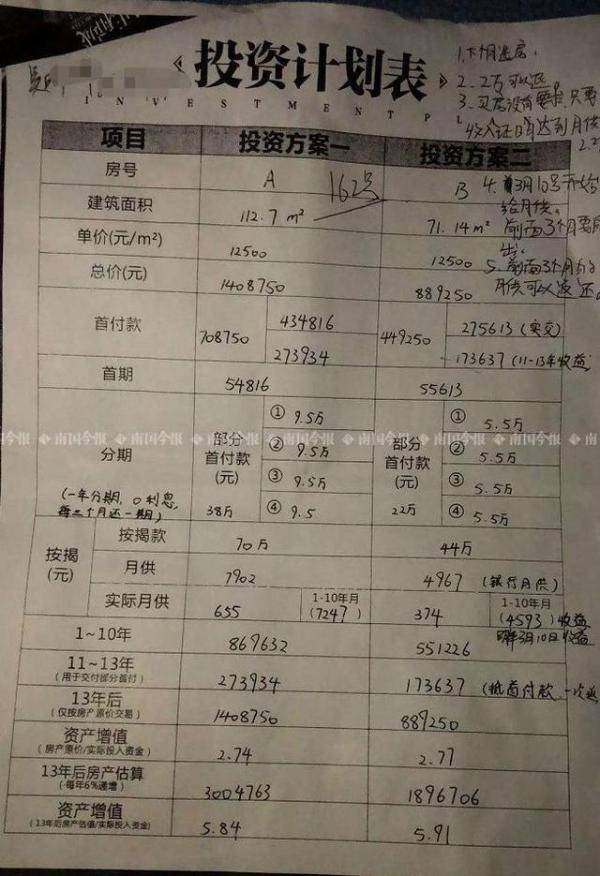 投资计划表
INVESTMENT P
1.下个月选房.
2.2万可以退
3.买房没有要求,只要
收入证明达到月供
项目 投资方案一 投资方案二
房号 A 162号 B
4.首3月10号开始
给月供。
建筑面积 112.7 m² 71.14 m²
前面3个月要
单价(元/m²) 12500 12500
5.前面3个月
月供可以返还
总价(元) 1408750 889250
首付款 708750 434816 449250 275613 (实交)
273934 173637 (11-13年收益
首期 54816 55613
分期 部分首付款(元) ① 9.5万 部分首付款(元) ① 5.5万
② 9.5万 ② 5.5万
③ 9.5万 ③ 5.5万
38万 ④ 9.5 22万 ④ 5.5万
(一年分期,0利息,
每三个月还一期)
南国今报 南国今报 南国今报 南国今报 南国今报
按揭(元) 按揭款 70万 44万
月供 7902 4967 (银行月供)
实际月供 655 1-10年月(7247) 374 1-10年月(4593)收益
1~10年 869632 551226
3月10日收益
11~13年 273934 173637 (抵首付款,一次
(用于交付部分首付)
13年后 1408750 889250
(仅按房产原价交易)
资产增值 2.74 2.77
(房产原价/实际投入资金)
13年后房产估算 3004763 1896706
(每年6%递增)
资产增值 5.84 5.91
(13年后房产估值/实际投入资金)